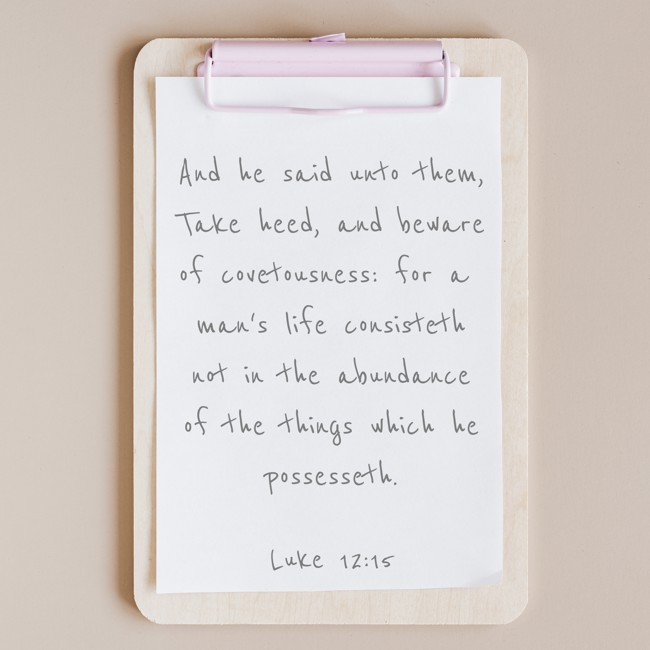 And he said unto them,
Take heed, and beware
of covetousness: for a
man's life consisteth
not in the abundance
of the things which he
possesseth.
Luke 12:15